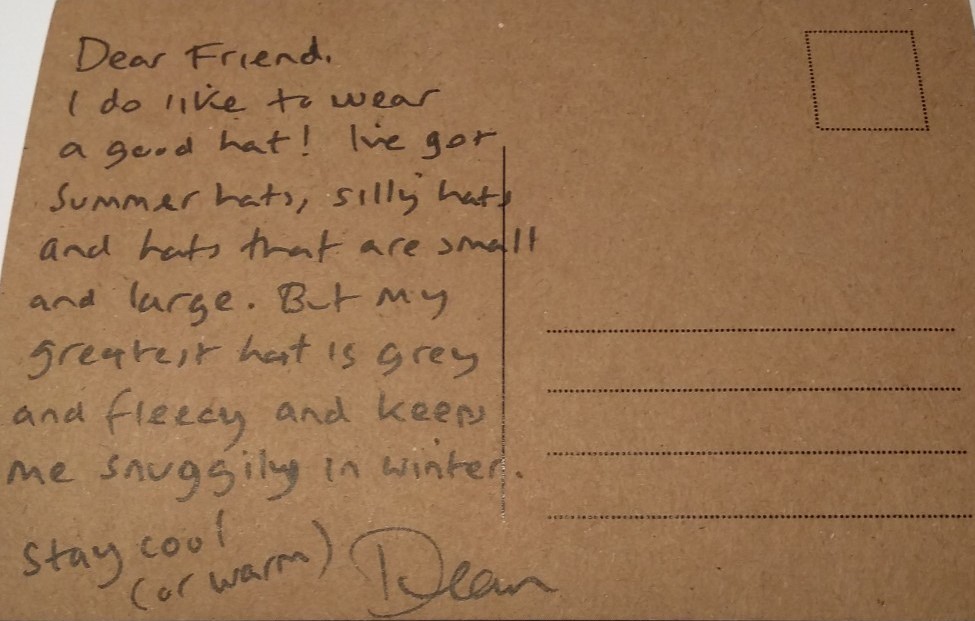 Dear Friend.
I do like to wear
a good hat! I've got
summer hats, silly hats
and hats that are small
and large. But my
greatest hat is grey
and fleecy and keeps
me snuggily in winter.
Stay cool
(or warm)
Dean